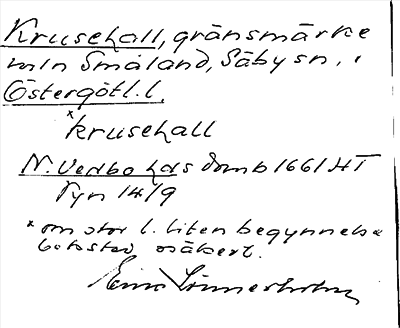 Krusehall, gränsmärke
mln Småland, Säby sn, i
Östergötl. l.
*krusehall
N. Vedbo hds domb 1661 HT
Fyn 14/9
* om stor l. liten begynnelse
bokstav osäkert.
Einar Linnerholm